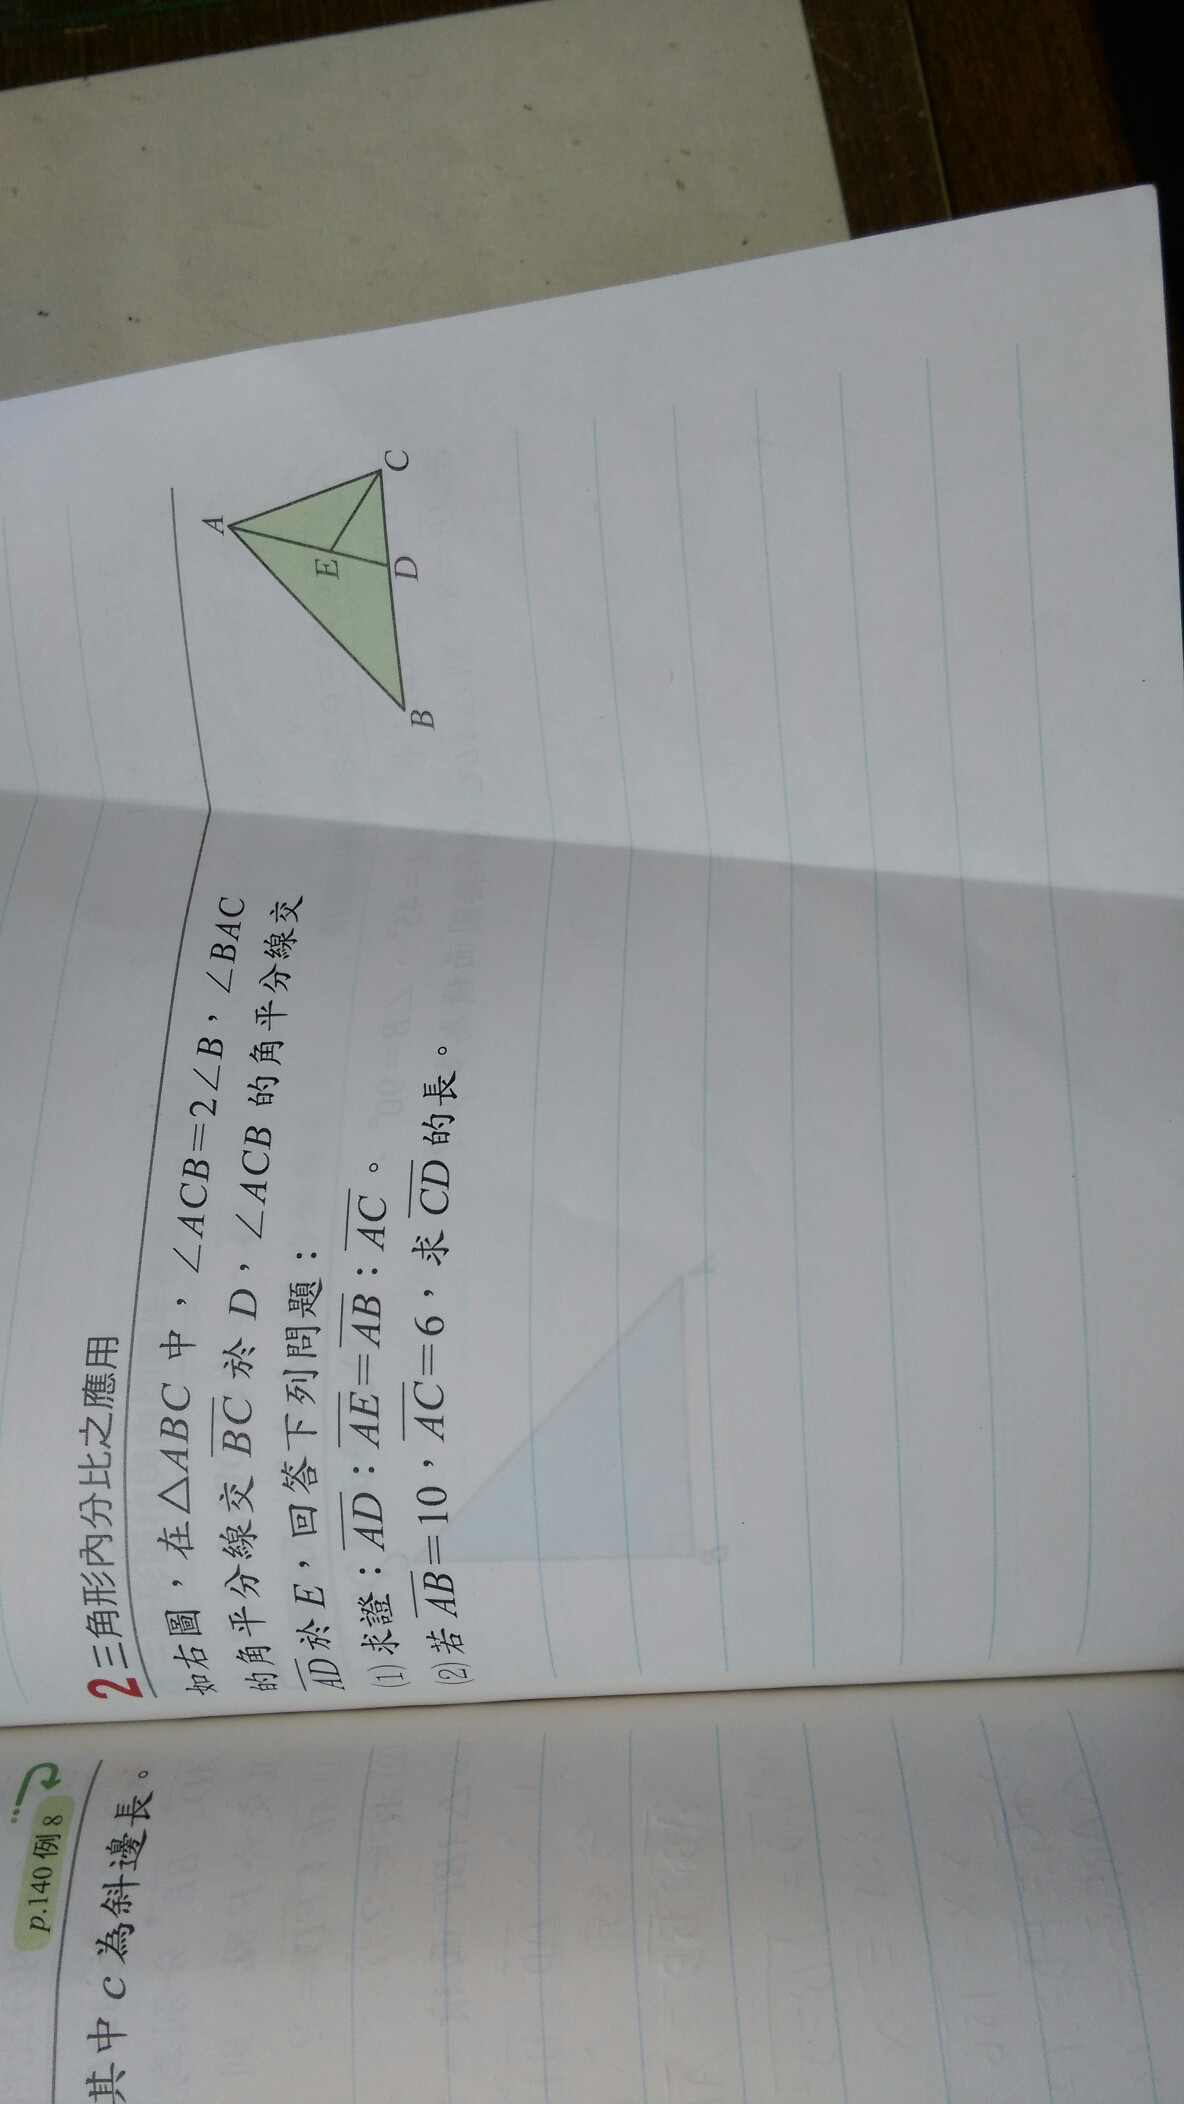 p.140 例 8
其中 c 為斜邊長。
2 三角形內分比之應用
如右圖，在△ABC 中，∠ACB=2∠B，∠BAC
的角平分線交 BC 於 D，∠ACB 的角平分線交
AD 於 E，回答下列問題：
(1) 求證：AD：AE=AB：AC。
(2) 若 AB=10，AC=6，求 CD 的長。
A
E
B
D
C